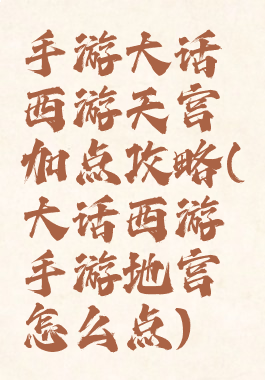 手游大话
西游天宫
加点攻略(
大话西游
手游地宫
怎么点)